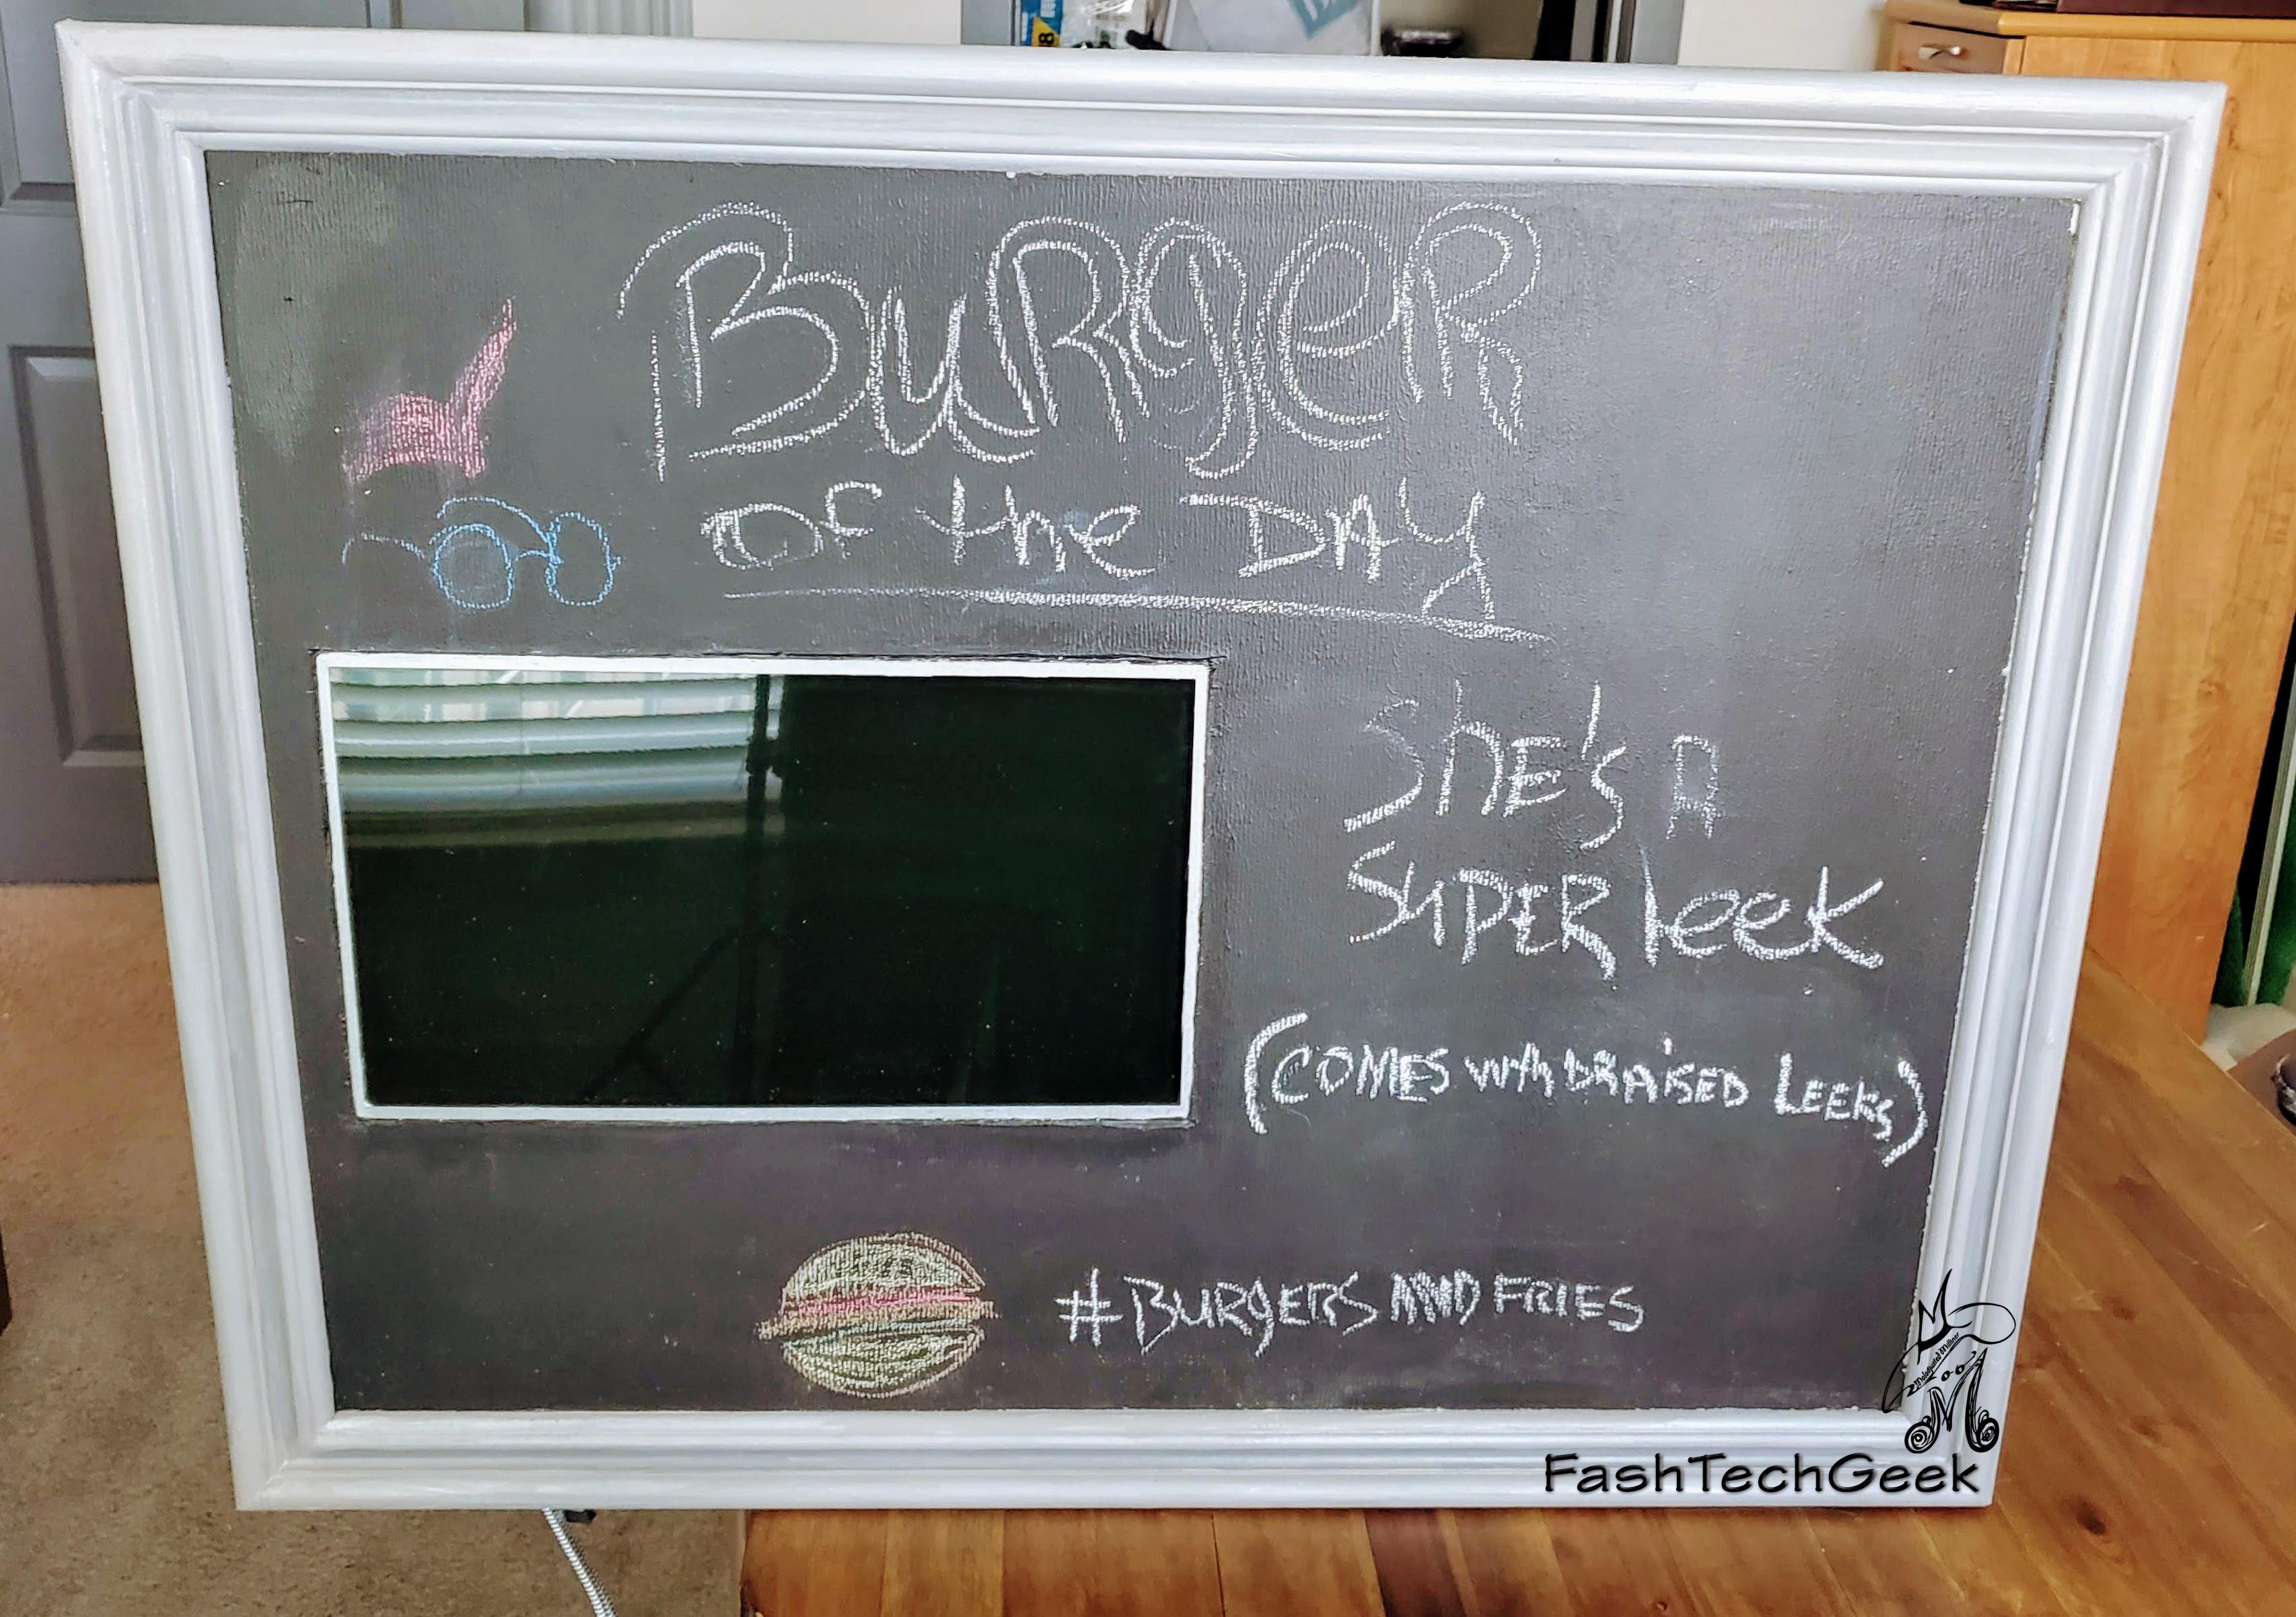 Burger
of the DAy
She's A
SuPER leek
(COMES with BRAiSED LEEKS)
#BURgERS AND FRiES
Maladjusted Milliner
M
FashTechGeek